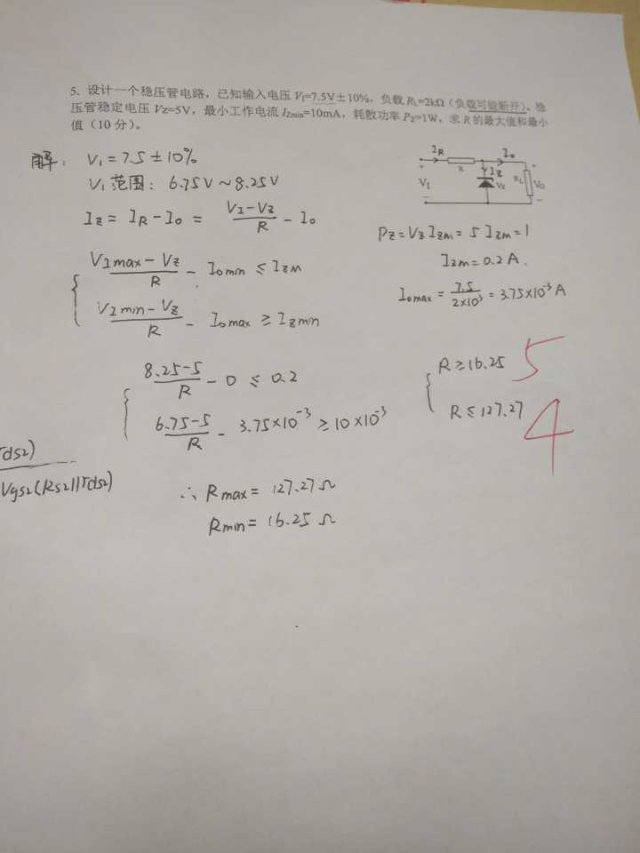 5. 设计一个稳压管电路，已知输入电压 V_I=7.5V±10%，负载 R_L=2kΩ（负载可能断开）。稳
压管稳定电压 V_Z=5V，最小工作电流 I_Zmin=10mA，耗散功率 P_Z=1W，求 R 的最大值和最小
值（10 分）。
解： V_1 = 7.5 ± 10%
V_1 范围：6.75V ~ 8.25V
I_Z = I_R - I_o = (V_I - V_Z)/R - I_o
{ (V_Imax - V_Z)/R - I_omin ≤ I_ZM
(V_Imin - V_Z)/R - I_omax ≥ I_Zmin
I_R I_o
+ R I_Z +
V_I V_Z R_L V_O
- -
P_Z = V_Z I_ZM = 5 I_ZM = 1
I_ZM = 0.2 A.
I_omax = 7.5/(2×10³) = 3.75×10⁻³ A
{ (8.25-5)/R - 0 ≤ 0.2
(6.75-5)/R - 3.75×10⁻³ ≥ 10×10⁻³
{ R ≥ 16.25 5
R ≤ 127.27 4
∴ Rmax = 127.27 Ω
Rmin = 16.25 Ω
rds2)
Vgs2(Rs2||rds2)